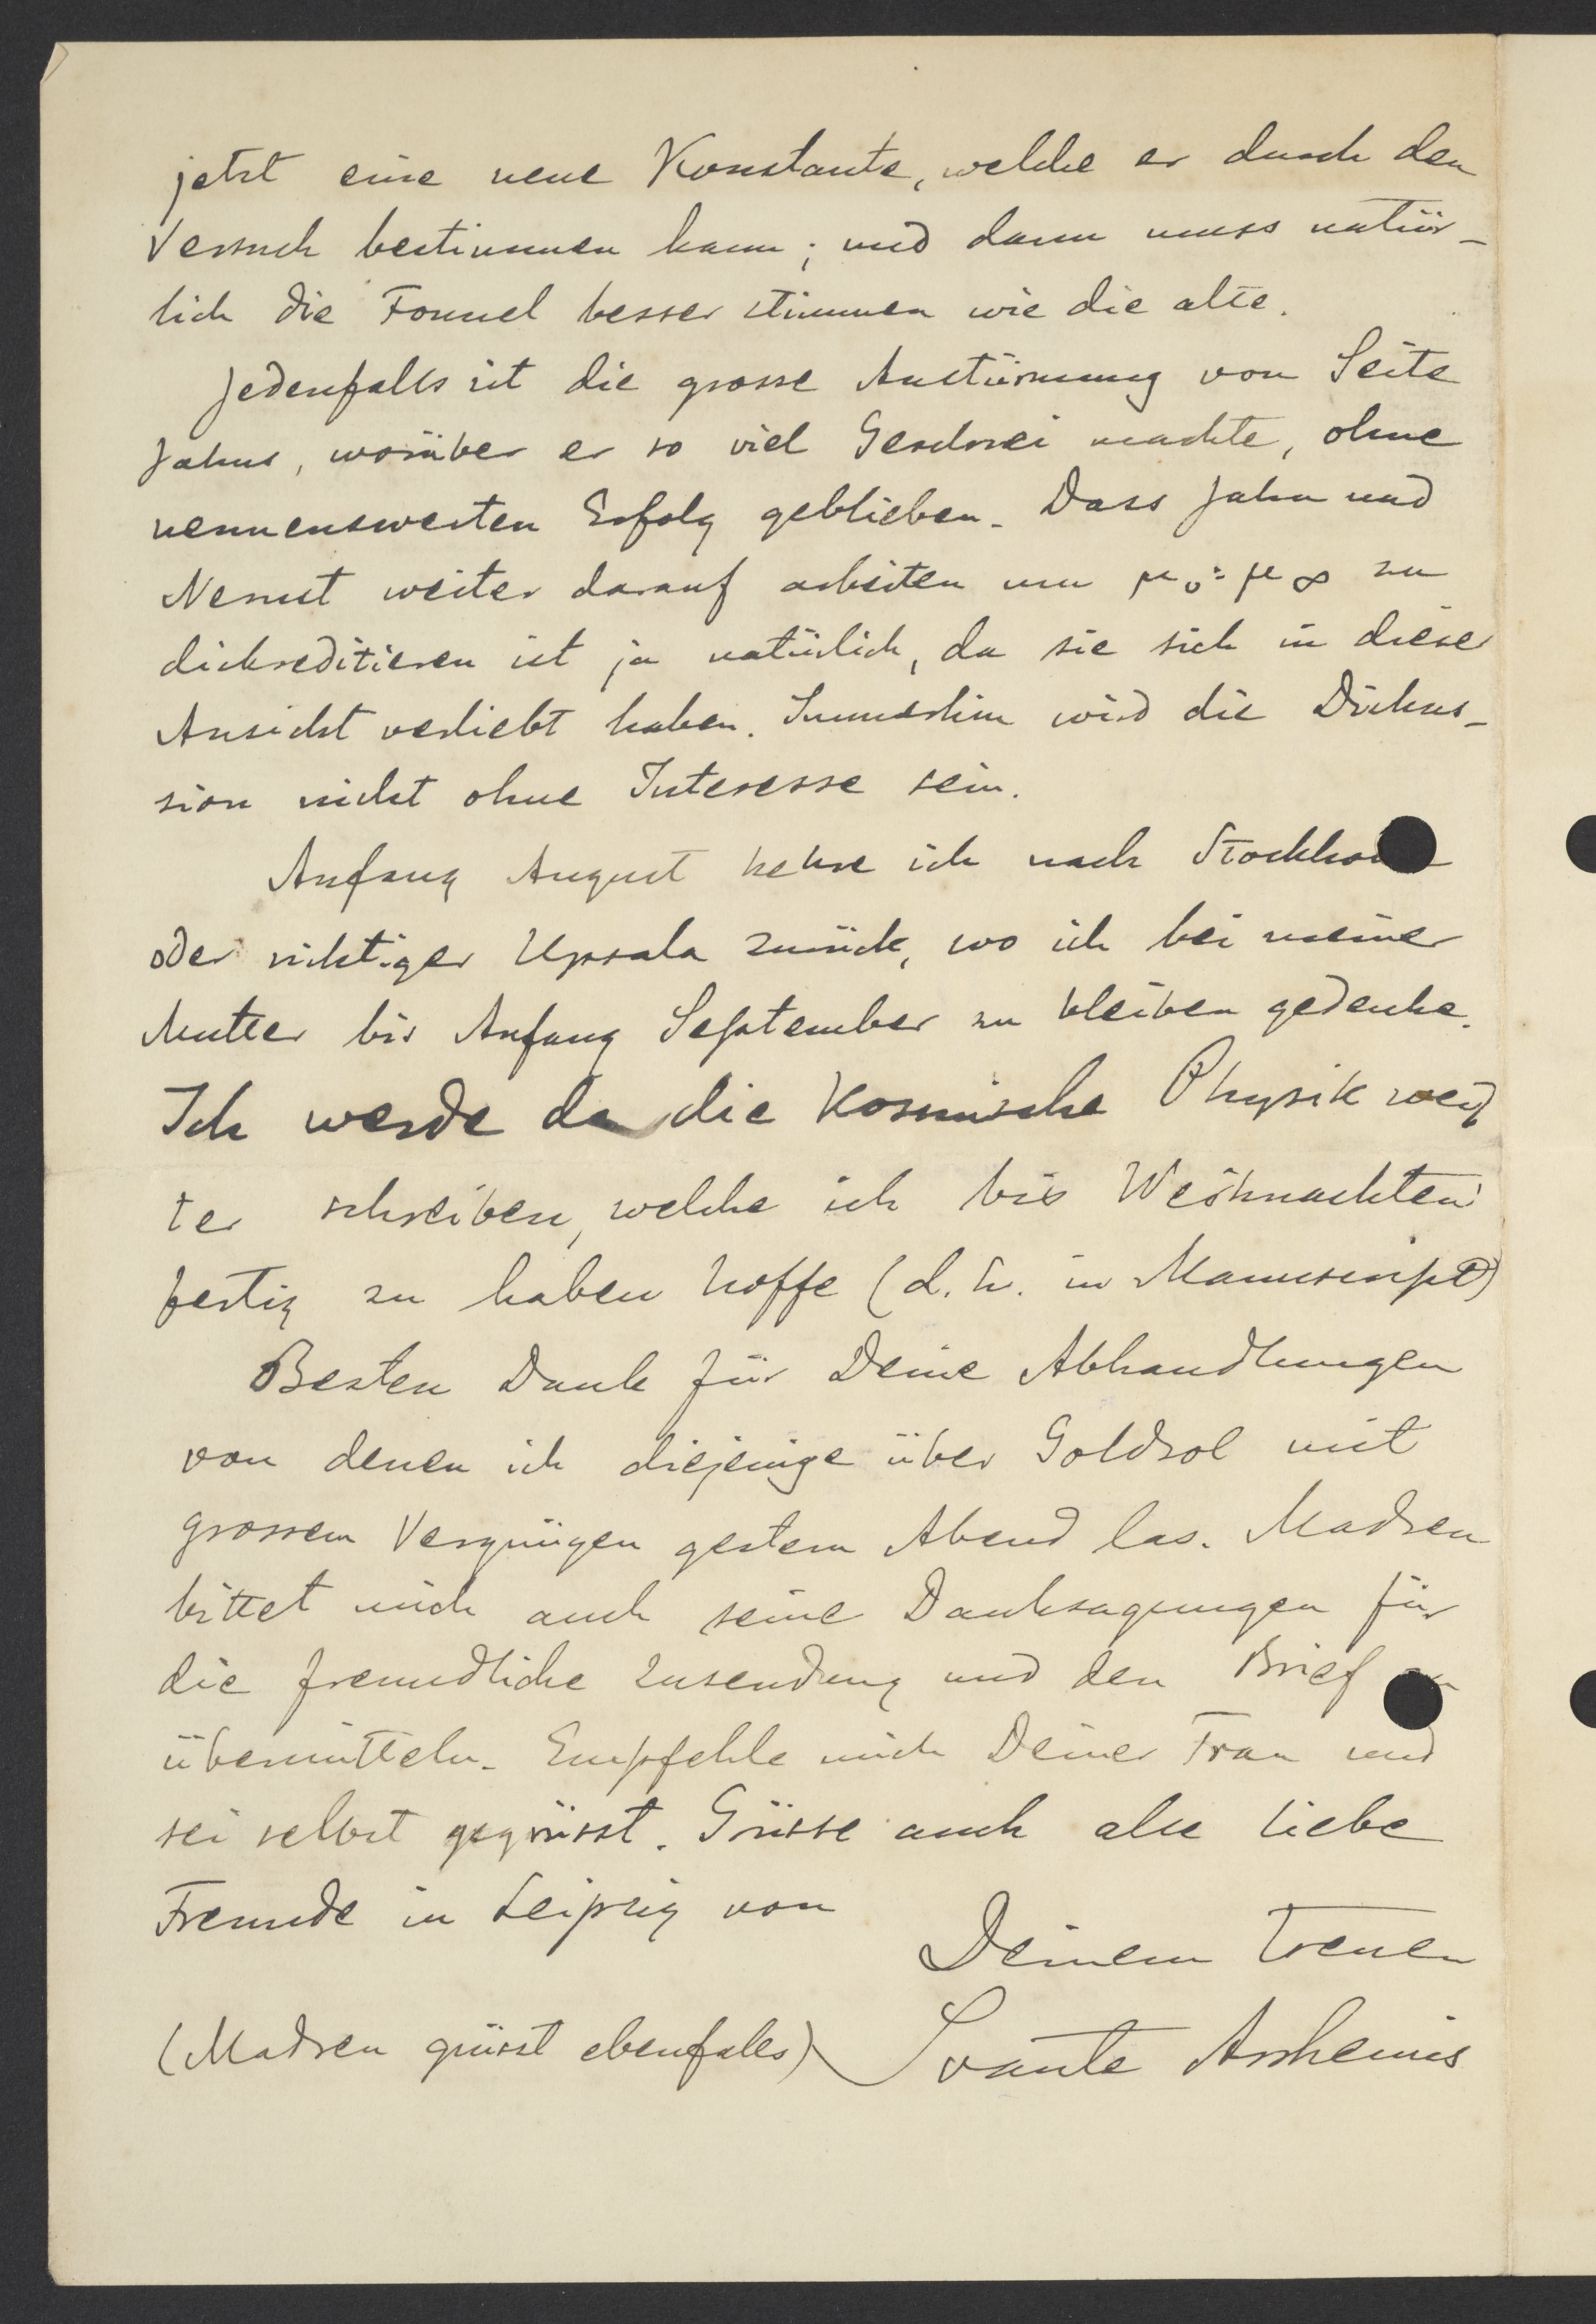 jetzt eine neue Konstante, welche er durch den
Versuch bestimmen kann; und dann muss natür-
lich die Formel besser stimmen wie die alte.
Jedenfalls ist die grosse Anstürmung von Seite
Jahns, worüber er so viel Geschrei machte, ohne
nennenswerten Erfolg geblieben. Dass Jahn und
Nernst weiter darauf arbeiten um μv : μ∞ zu
diskreditieren ist ja natürlich, da sie sich in diese
Ansicht verliebt haben. Immerhin wird die Diskus-
sion nicht ohne Interesse sein.
Anfang August kehre ich nach Stockholm
oder richtiger Upsala zurück, wo ich bei meiner
Mutter bis Anfang September zu bleiben gedenke.
Ich werde da die kosmische Physik wei
ter schreiben, welche ich bis Weihnachten
fertig zu haben hoffe (d. h. in Manuscript)
Besten Dank für Deine Abhandlungen
von denen ich diejenige über Goldsol mit
grossem Vergnügen gestern Abend las. Madsen
bittet mich auch seine Danksagungen für
die freundliche Zusendung und den Brief zu
übermitteln. Empfehle mich Deiner Frau und
sei selbst gegrüsst. Grüsse auch alle liebe
Freunde in Leipzig von
Deinem treuen
(Madsen grüsst ebenfalls) Svante Arrhenius